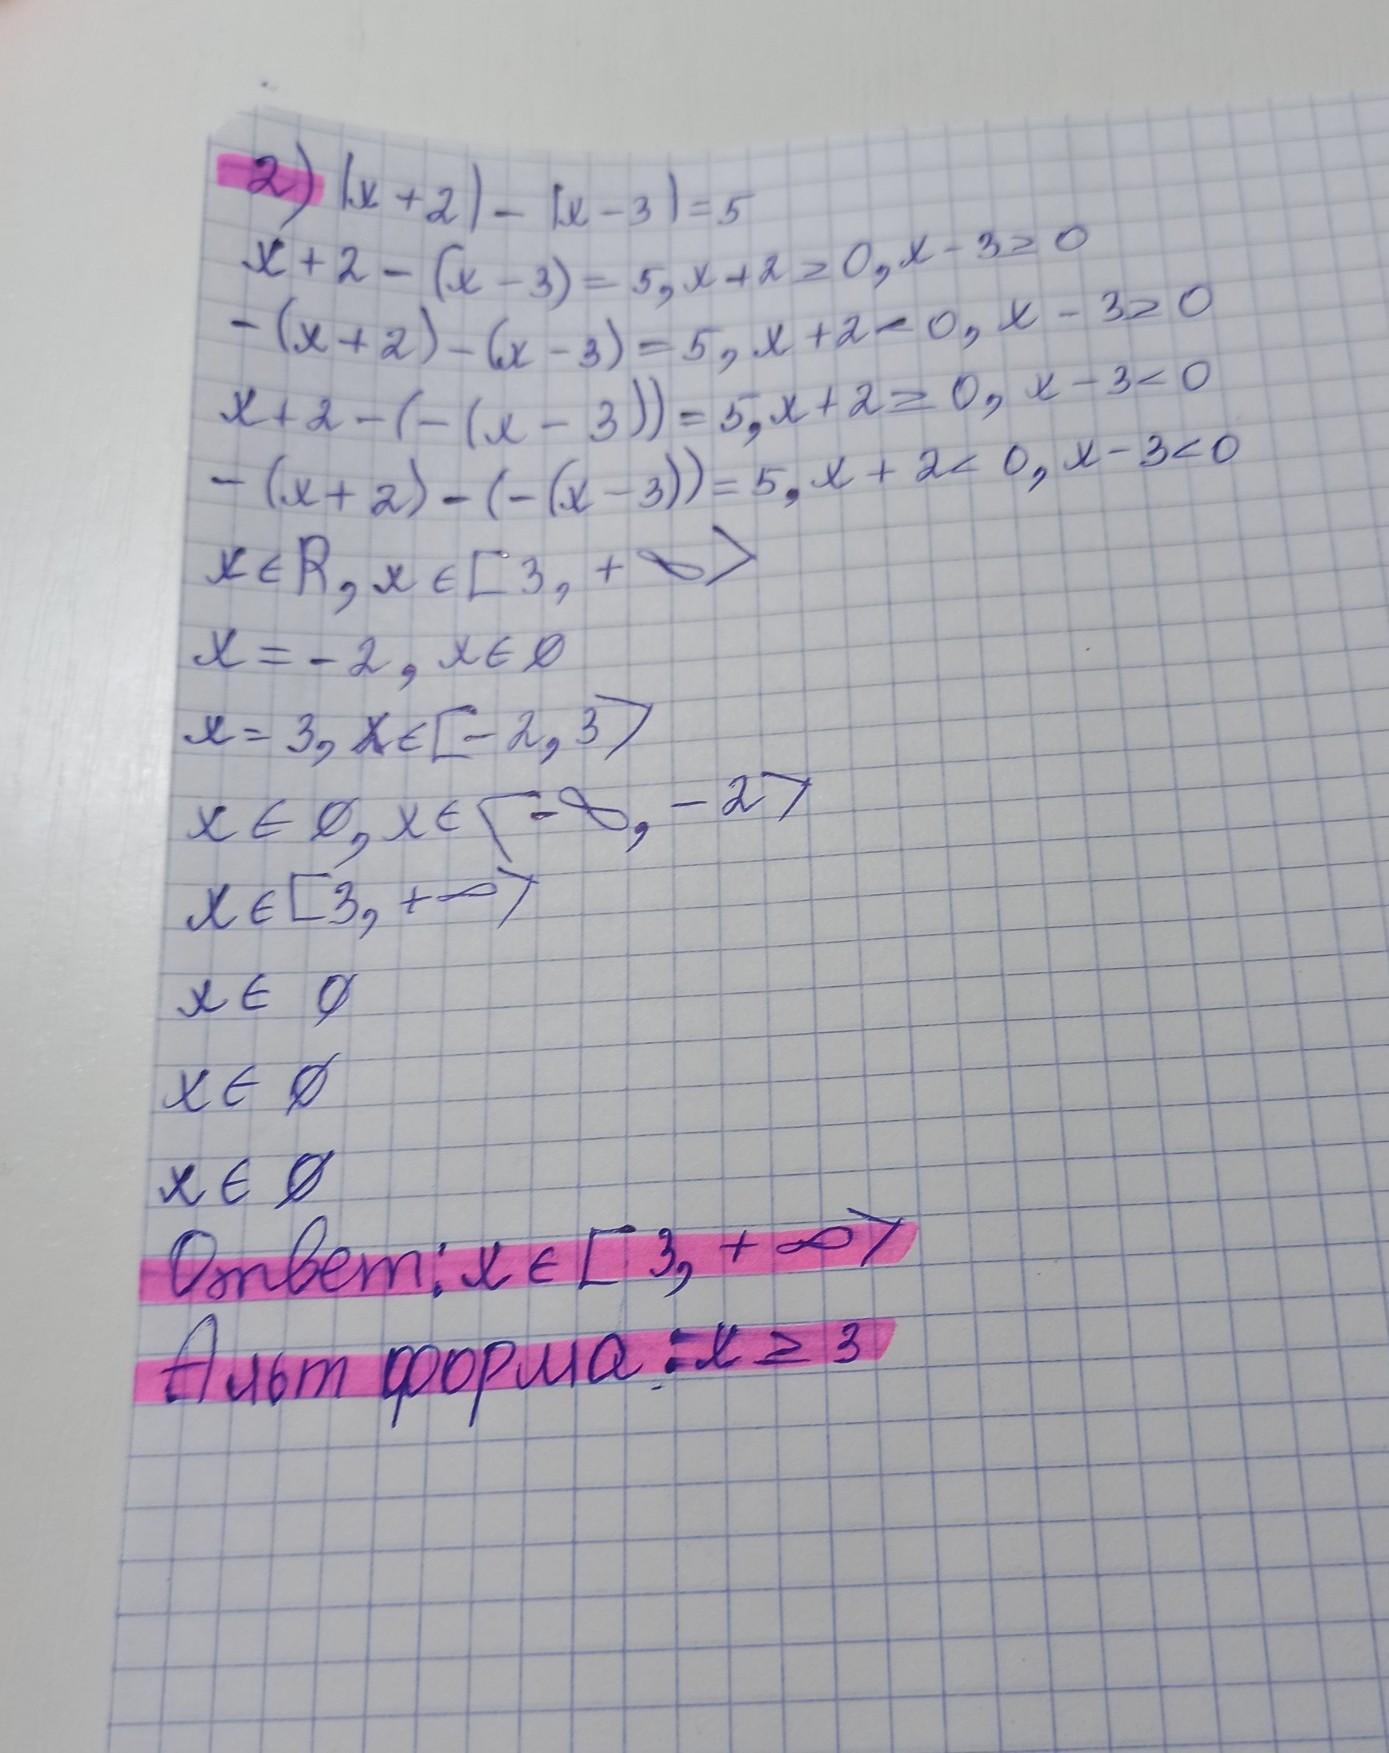 2) |x+2|-|x-3|=5
x+2-(x-3)=5, x+2≥0, x-3≥0
-(x+2)-(x-3)=5, x+2<0, x-3≥0
x+2-(-(x-3))=5, x+2≥0, x-3<0
-(x+2)-(-(x-3))=5, x+2<0, x-3<0
x∈R, x∈[3,+∞>
x=-2, x∈∅
x=3, x∈[-2,3>
x∈∅, x∈[-∞,-2>
x∈[3,+∞>
x∈ ∅
x∈ ∅
x∈ ∅
Ответ: x∈[3,+∞>
Альт форма: x≥3